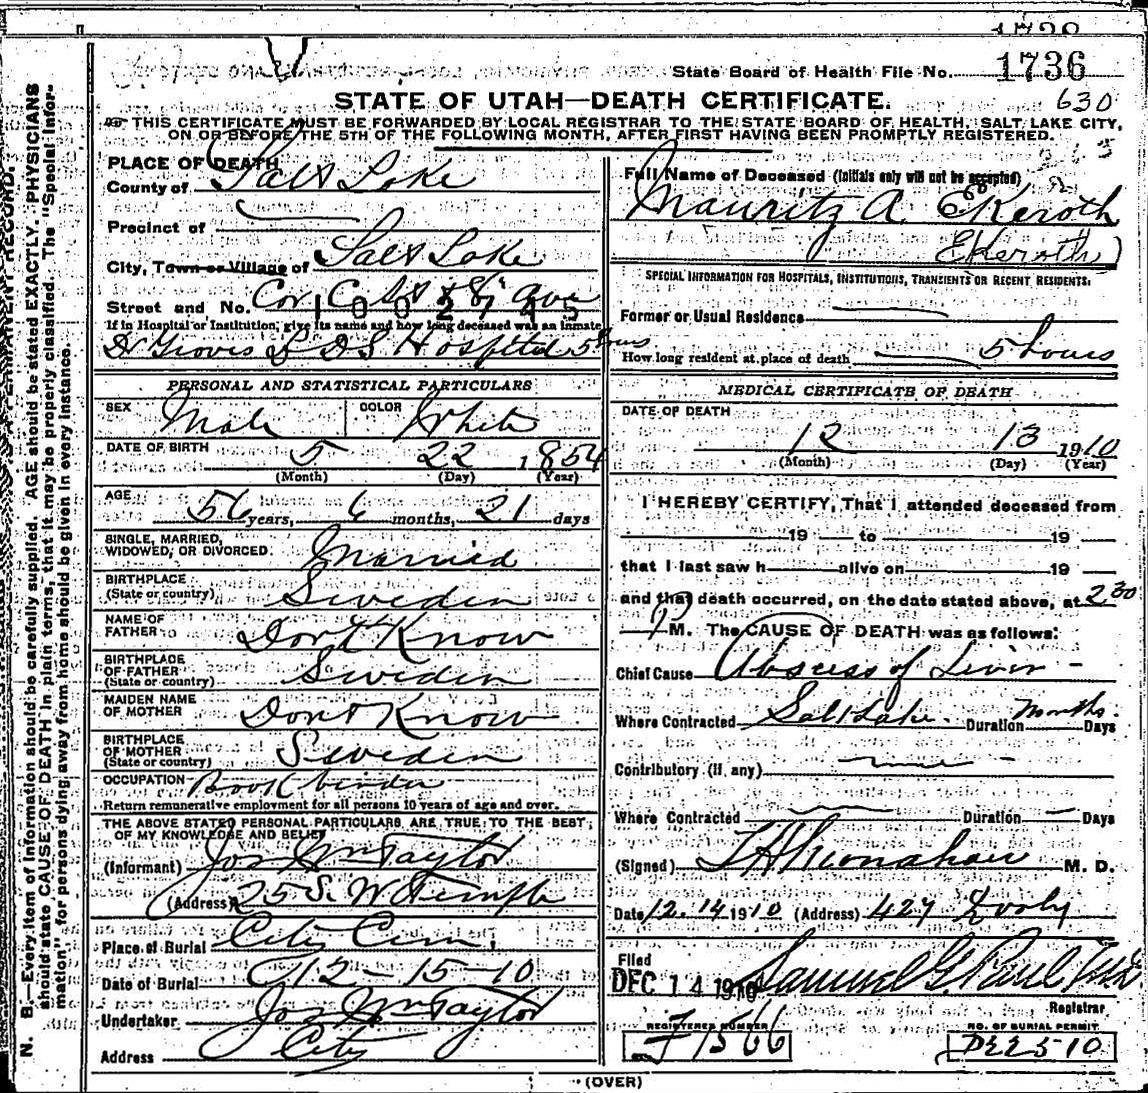 1736
State Board of Health File No. 1736
STATE OF UTAH—DEATH CERTIFICATE. 630
THIS CERTIFICATE MUST BE FORWARDED BY LOCAL REGISTRAR TO THE STATE BOARD OF HEALTH, SALT LAKE CITY,
ON OR BEFORE THE 5TH OF THE FOLLOWING MONTH, AFTER FIRST HAVING BEEN PROMPTLY REGISTERED.
N. B.—Every item of information should be carefully supplied. AGE should be stated EXACTLY. PHYSICIANS
should state CAUSE OF DEATH in plain terms, that it may be properly classified. The "Special Infor-
mation" for persons dying away from home should be given in every instance.
PLACE OF DEATH
County of Salt Lake
Precinct of
City, Town or Village of Salt Lake
Street and No. Cor C St & 8 ave
1002745
If in Hospital or Institution, give its name and how long deceased was an inmate
Dr Groves L D S Hospital 5 hours
PERSONAL AND STATISTICAL PARTICULARS
SEX Male COLOR White
DATE OF BIRTH 5 22 1854
(Month) (Day) (Year)
AGE 56 years, 6 months, 21 days
SINGLE, MARRIED,
WIDOWED, OR DIVORCED Married
BIRTHPLACE
(State or country) Sweden
NAME OF
FATHER Dont Know
BIRTHPLACE
OF FATHER
(State or country) Sweden
MAIDEN NAME
OF MOTHER Dont Know
BIRTHPLACE
OF MOTHER
(State or country) Sweden
OCCUPATION Book binder
Return remunerative employment for all persons 10 years of age and over.
THE ABOVE STATED PERSONAL PARTICULARS ARE TRUE TO THE BEST
OF MY KNOWLEDGE AND BELIEF
(Informant) Jos Wm Taylor
(Address) 25 S. W Temple
Place of Burial City Cem.
Date of Burial 12-15-10
Undertaker Jos Wm Taylor
Address City
Full Name of Deceased (Initials only will not be accepted)
Mauritz A Ekeroth
Ekeroth)
SPECIAL INFORMATION FOR HOSPITALS, INSTITUTIONS, TRANSIENTS OR RECENT RESIDENTS:
Former or Usual Residence
How long resident at place of death 5 hours
MEDICAL CERTIFICATE OF DEATH
DATE OF DEATH
12 13 1910
(Month) (Day) (Year)
I HEREBY CERTIFY, That I attended deceased from
19 to 19
that I last saw h alive on 19
and that death occurred, on the date stated above, at 2 30
P M. The CAUSE OF DEATH was as follows:
Chief Cause Abscess of Liver -
Where Contracted Salt Lake. Duration Months. Days
Contributory (if any)
Where Contracted Duration Days
(Signed) M. D.
Date 12.14 1910 (Address) 427
Filed
DEC 14 1910 Samuel G. Paul
Registrar
REGISTERED NUMBER
F 1566
NO. OF BURIAL PERMIT
D2510
(OVER)